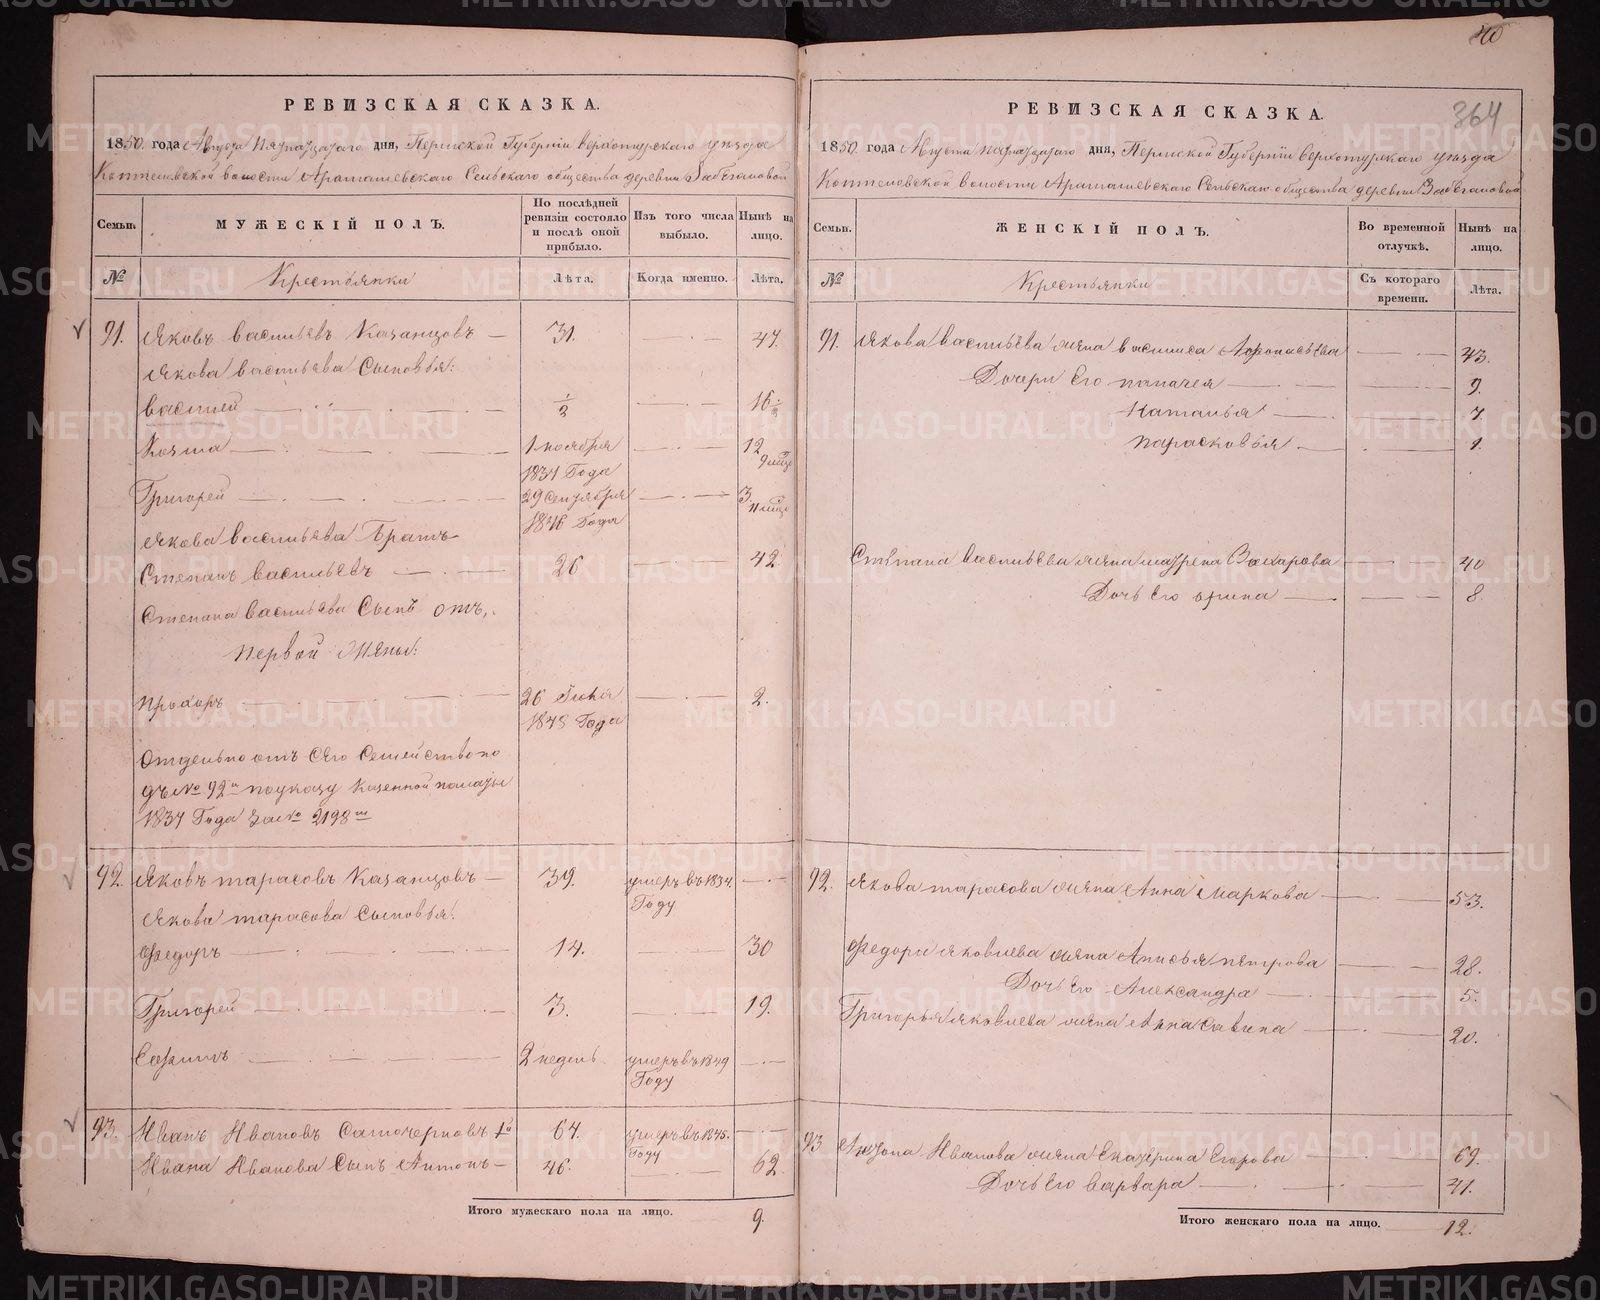 40
364
РЕВИЗСКАЯ СКАЗКА.
1850 года Августа пятнадцатого дня, Пермской Губерніи верхотурскаго уезда
Коптеловской волости Арамашевскаго Сельскаго общества деревни
Семьи.
МУЖЕСКІЙ ПОЛЪ.
По послѣдней ревизіи состояло и послѣ оной прибыло.
Изъ того числа выбыло.
Нынѣ на лицо.
№
Лѣта.
Когда именно.
Лѣта.
91. Яковъ васильевъ Казанцовъ — 31. — 47.
Якова васильева Сыновья:
василей — ½ — 16 ½
Козма — 1 ноября 1837 Года — 12 9 мѣс
Григорей — 29 Сентября 1846 Года — 3. 11 мѣс
Якова васильева Братъ
Степанъ васильевъ — 26 — 42.
Степана васильева Сынъ отъ,
первой Жены:
Прохоръ — 26 Іюня 1848 Года — 2.
Отдельно отъ Сего Семейство по
дъ № 92 м по указу Казенной палаты
1837 Года за № 2198 м
92. Яковъ тарасовъ Казанцовъ — 39. умеръ въ 1834. Году —
Якова тарасова Сыновья:
Федоръ — 14. — 30
Григорей — 3. — 19.
2 недель умеръ въ 1849 Году —
93. Иванъ Ивановъ Самочерновъ 1й 64. умеръ въ 1845. Году —
Ивана Иванова Сынъ Антонъ — 46. — 62
Итого мужескаго пола на лицо. 9.
РЕВИЗСКАЯ СКАЗКА.
1850 года Августа пятнадцатого дня, Пермской Губерніи верхотурскаго уезда
Коптеловской волости Арамашевскаго Сельскаго общества деревни
Семьи.
ЖЕНСКІЙ ПОЛЪ.
Во временной отлучкѣ.
Нынѣ на лицо.
№
Съ котораго времени.
Лѣта.
91. Якова васильева жена василиса Афонасьева — 43.
Дочери Его — 9.
Наталья — 7.
парасковья — 1.
Степана васильева жена Захарова — 40
Дочь Его — 8.
92. Якова тарасова жена Анна Маркова — 53.
Федора яковлева жена Анисья петрова — 28.
Дочь Его Александра — 5.
Григорья яковлева жена Анна Савина — 20.
93 Антона Иванова жена Екатерина Егорова — 69.
Дочь Его варвара — 41.
Итого женскаго пола на лицо. 12.
METRIKI.GASO-URAL.RU